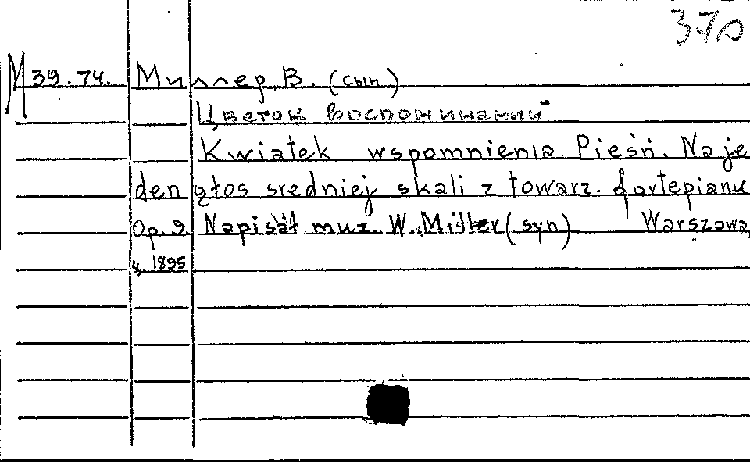 370
М 39.74. Миллер В. (сын)
Цветок воспоминаний
Kwiatek wspomnienia Pieśń. Na je
den głos średniej skali z towarz. fortepianu
Op. 9 Napisał muz. W. Miller (syn) Warszawa,
ц. 1895